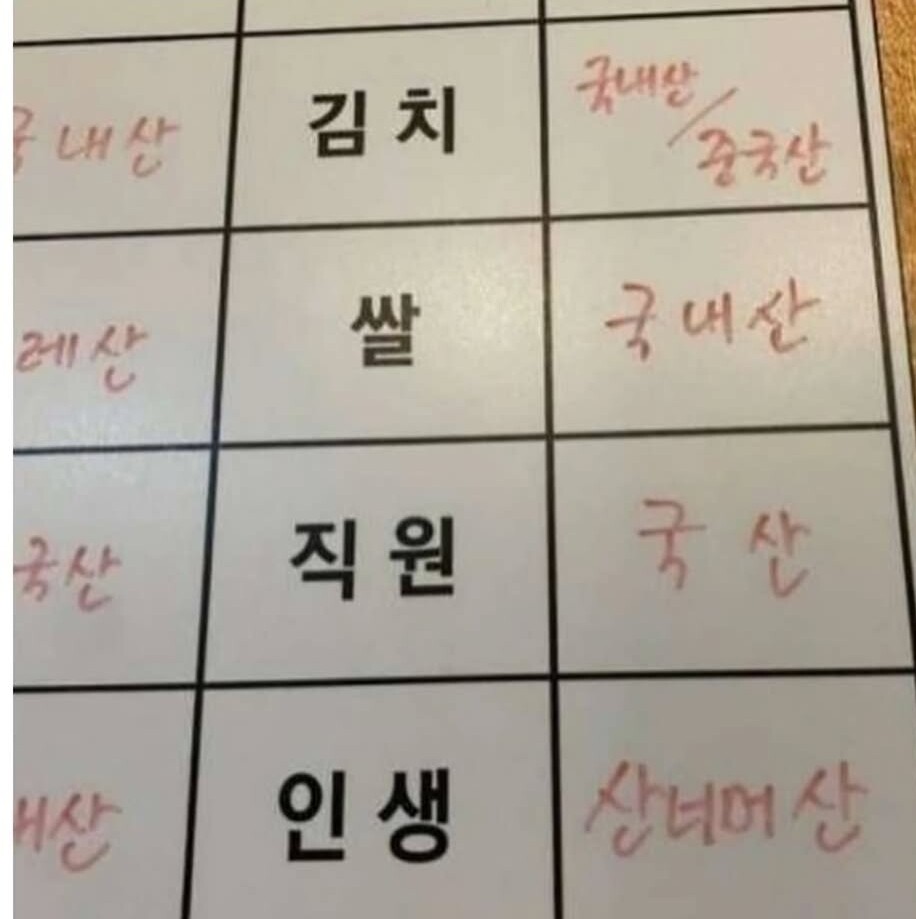 국내산 김치 국내산/중국산
쌀 국내산
국산 직원 국산
인생 산너머 산